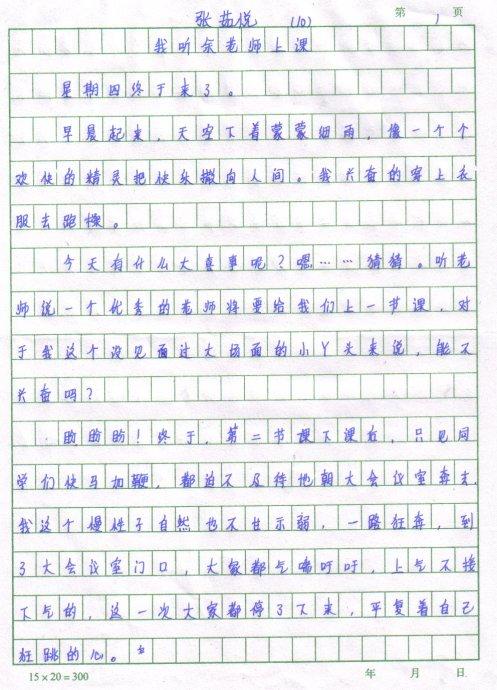 张茹悦 (10) 第 1 页
我听余老师上课
星期四终于来了。
早晨起来，天空下着蒙蒙细雨，像一个个
欢快的精灵把快乐撒向人间。我兴奋的穿上衣
服去跑操。
今天有什么大喜事呢？嗯……猜猜。听老
师说一个优秀的老师将要给我们上一节课，对
于我这个没见面过大场面的小丫头来说，能不
兴奋吗？
盼盼盼！终于，第二节课下课后，只见同
学们快马加鞭，都迫不及待地朝大会议室奔去，
我这个慢性子自然也不甘示弱，一路狂奔，到
了大会议室门口，大家都气喘吁吁，上气不接
下气的，这一次大家都停了下来，平复着自己
狂跳的心。
15×20=300 年 月 日